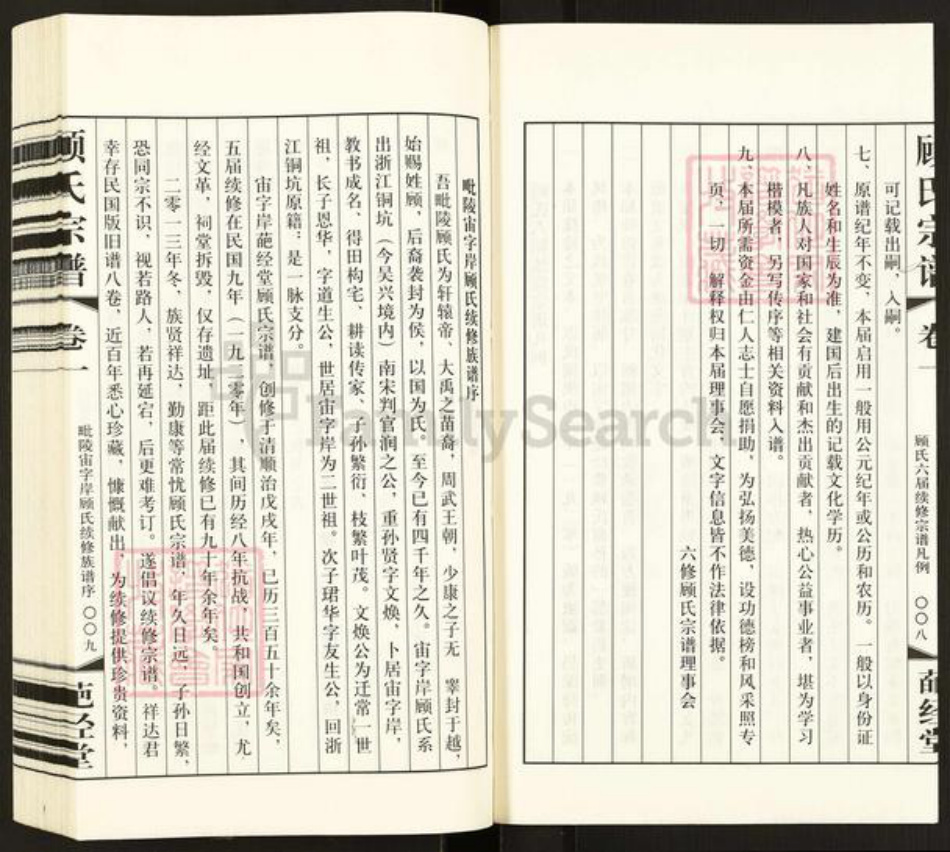 顾氏宗谱
卷一
顾氏六届续修宗谱凡例
〇〇八
葩经堂
可记载出嗣，入嗣。
七、原谱纪年不变，本届启用一般用公元纪年或公历和农历。一般以身份证
姓名和生辰为准，建国后出生的记载文化学历。
八、凡族人对国家和社会有贡献和杰出贡献者，热心公益事业者，堪为学习
楷模者，另写传序等相关资料入谱。
九、本届所需资金由仁人志士自愿捐助，为弘扬美德，设功德榜和风采照专
页，一切 解释权归本届理事会，文字信息皆不作法律依据。
六修顾氏宗谱理事会
毗陵宙字岸顾氏续修族谱序
吾毗陵顾氏为轩辕帝、大禹之苗裔，周武王朝，少康之子无 睪封于越，
始赐姓顾，后裔袭封为侯，以国为氏，至今已有四千年之久。宙字岸顾氏系
出浙江铜坑（今吴兴境内）南宋判官润之公，重孙贤字文焕，卜居宙字岸，
教书成名、得田构宅、耕读传家、子孙繁衍、枝繁叶茂。文焕公为迁常一世
祖，长子恩华，字道生公，世居宙字岸为二世祖。次子珺华字友生公，回浙
江铜坑原籍；是一脉支分。
宙字岸葩经堂顾氏宗谱，创修于清顺治戊戌年，已历三百五十余年矣，
五届续修在民国九年（一九二零年），其间历经八年抗战，共和国创立，尤
经文革，祠堂拆毁，仅存遗址，距此届续修已有九十年余年矣。
二零一三年冬，族贤祥达，勤康等常忧顾氏宗谱，年久日远，子孙日繁，
恐同宗不识，视若路人，若再延宕，后更难考订。遂倡议续修宗谱。祥达君
幸存民国版旧谱八卷，近百年悉心珍藏，慷慨献出，为续修提供珍贵资料，
顾氏宗谱
卷一
毗陵宙字岸顾氏续修族谱序
〇〇九
葩经堂
FamilySearch